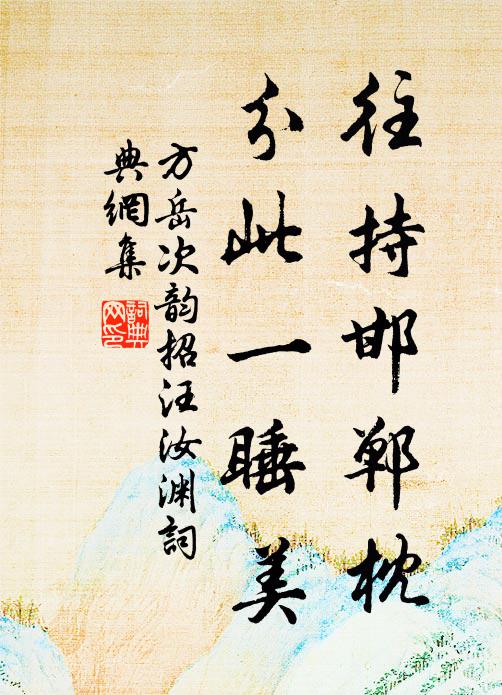 往持邯郸枕
分此一睡美
方岳次韵招汪汝渊词
典網集
詞典
网印